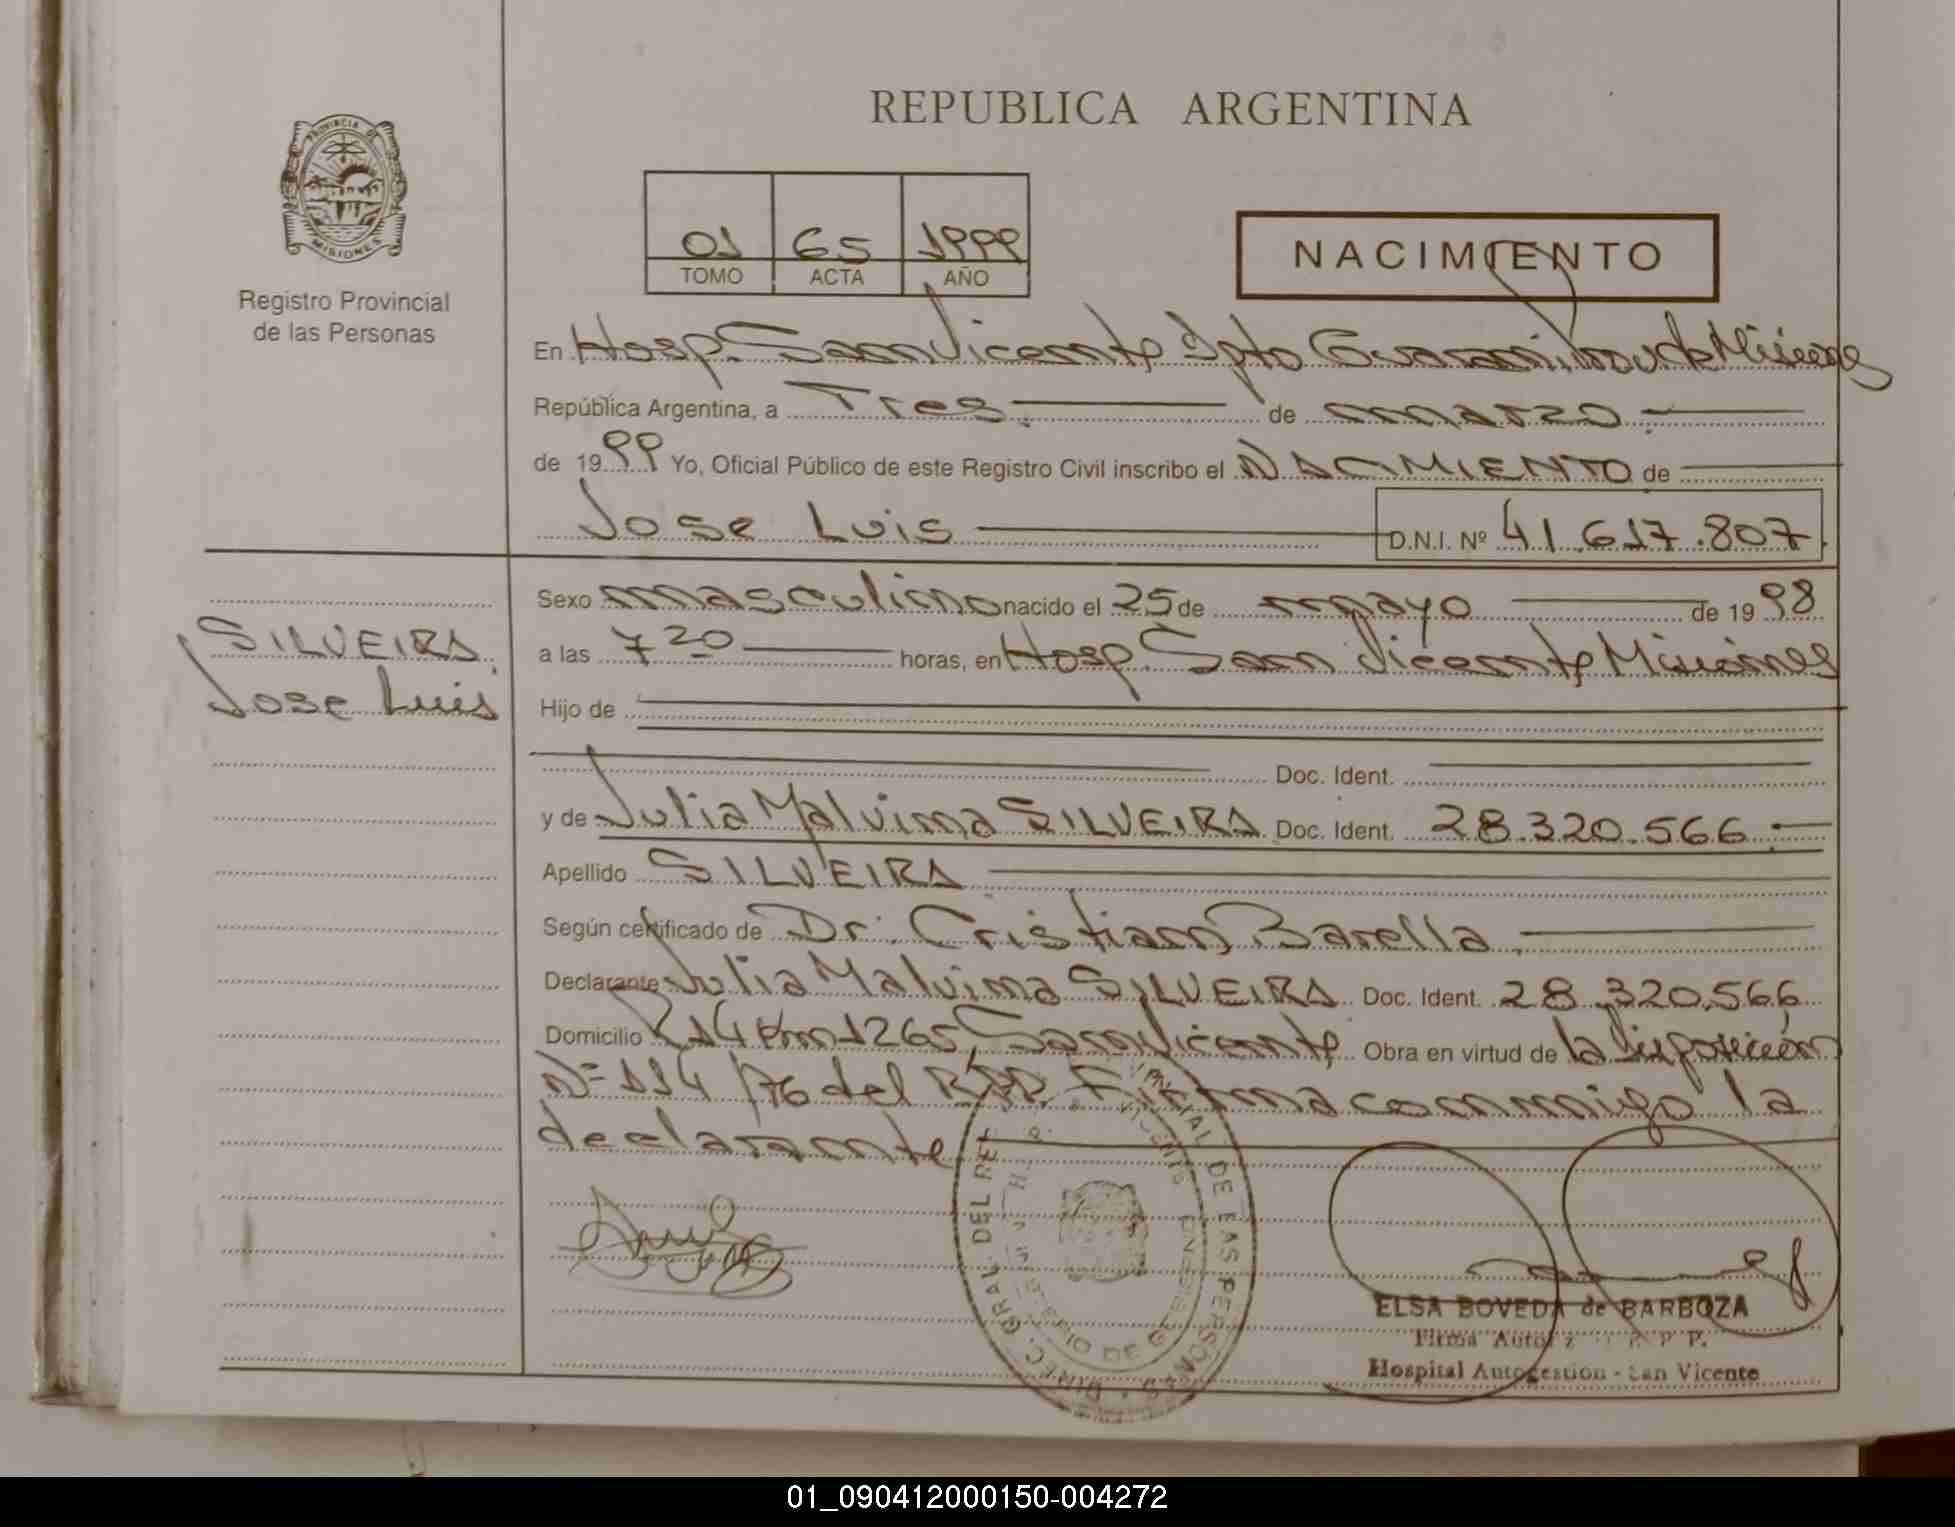 REPUBLICA ARGENTINA
PROVINCIA DE
MISIONES
Registro Provincial
de las Personas
01 65 1999
TOMO ACTA AÑO
NACIMIENTO
En Hosp. San Vicente Dpto Guarani Prov de Misiones
República Argentina, a Tres de marzo
de 1999 Yo, Oficial Público de este Registro Civil inscribo el NACIMIENTO de
Jose Luis D.N.I. Nº 41.617.807
Sexo masculino nacido el 25 de mayo de 1998
a las 7 20 horas, en Hosp. San Vicente Misiones
SILVEIRA
Jose Luis
Hijo de
Doc. Ident.
y de Julia Malvina SILVEIRA Doc. Ident. 28.320.566.
Apellido SILVEIRA
Según certificado de Dr. Cristian Barella
Declarante Julia Malvina SILVEIRA Doc. Ident. 28.320.566
Domicilio R14 Km 1265, San Vicente Obra en virtud de la Disposición
Nº 114/76 del RPP. Firma conmigo la
declarante
DIREC. GRAL. DEL REG. PROVINCIAL DE LAS PERSONAS
ELSA BOVEDA de BARBOZA
Firma Autoriz R P P.
Hospital Autogestion - San Vicente
01_090412000150-004272